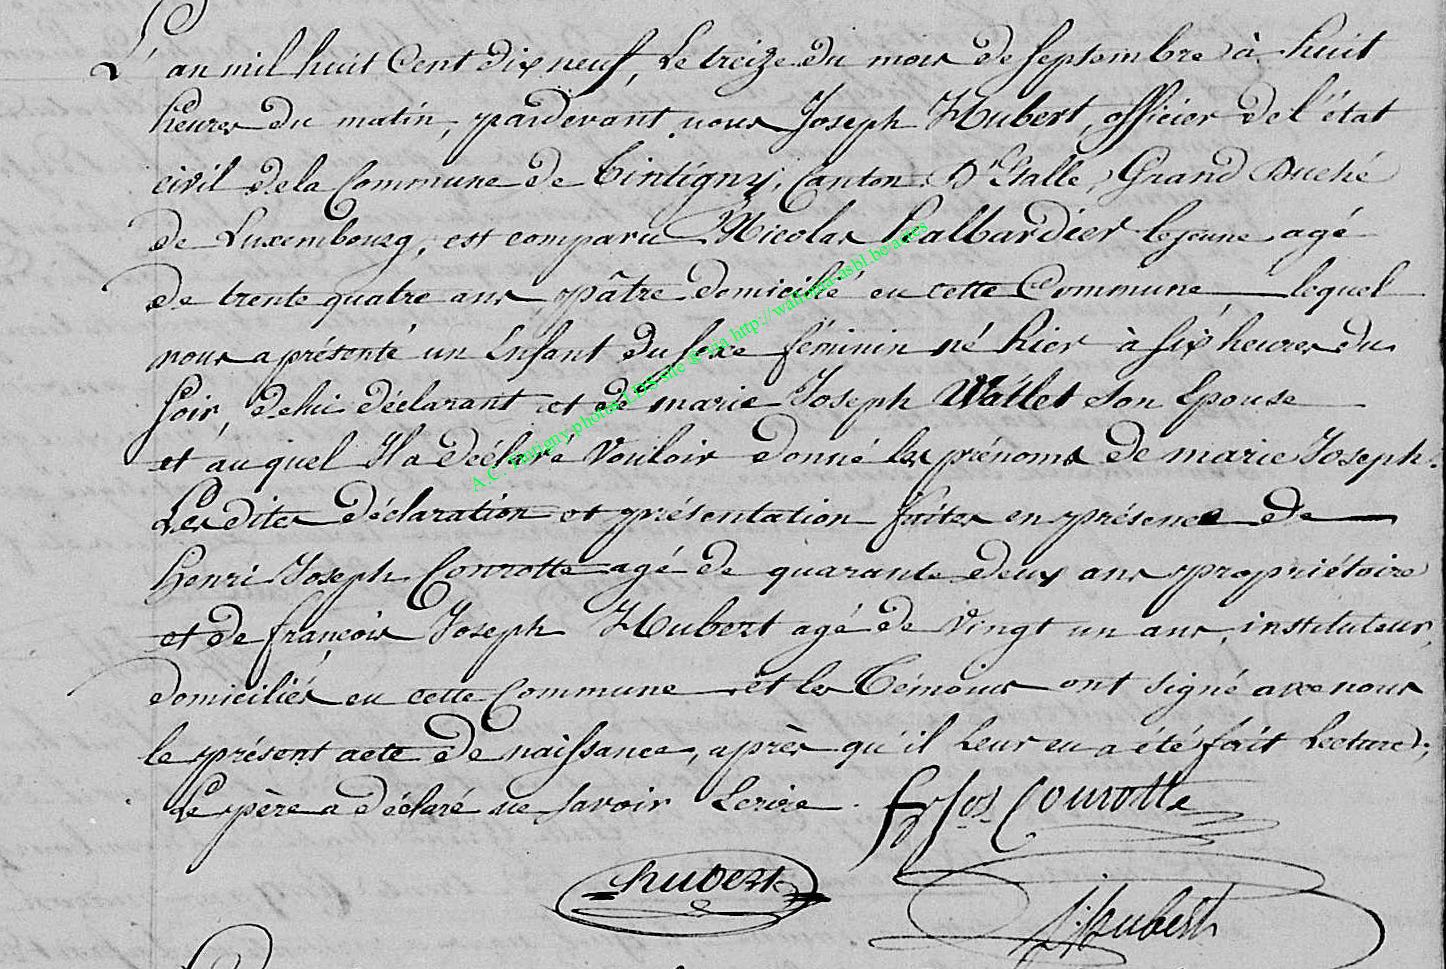 L'an mil huit Cent dix neuf, Le treize du mois de septembre à huit
heures du matin, pardevant nous Joseph Hubert, officier de l'état
civil de la Commune de Tintigny, Canton D'Etalle, Grand Duché
de Luxembourg, est comparu Nicolas halbardier lejeune agé
de trente quatre ans pâtre domicilié en cette Commune lequel
nous a présenté un Enfant du sexe féminin né hier à six heures du
soir, de lui déclarant et de marie Joseph Watlet son Epouse
et auquel Il a déclaré Vouloir donné les prénoms de marie Joseph.
Les dites déclaration et présentation faites en présence de
henri Joseph Conrotte agé de quarante deux ans propriétaire
et de françois Joseph Hubert agé de Vingt un ans, instituteur,
domiciliés en cette Commune et les Témoins ont signé avec nous
le présent acte de naissance, après qu'il Leur en a été fait Lecture,
Le père a déclaré ne savoir Ecrire. Jos Conrotte
hubert
hubert
A.C. Tintigny photos LDS site & via http://wallonia-asbl.be/actes